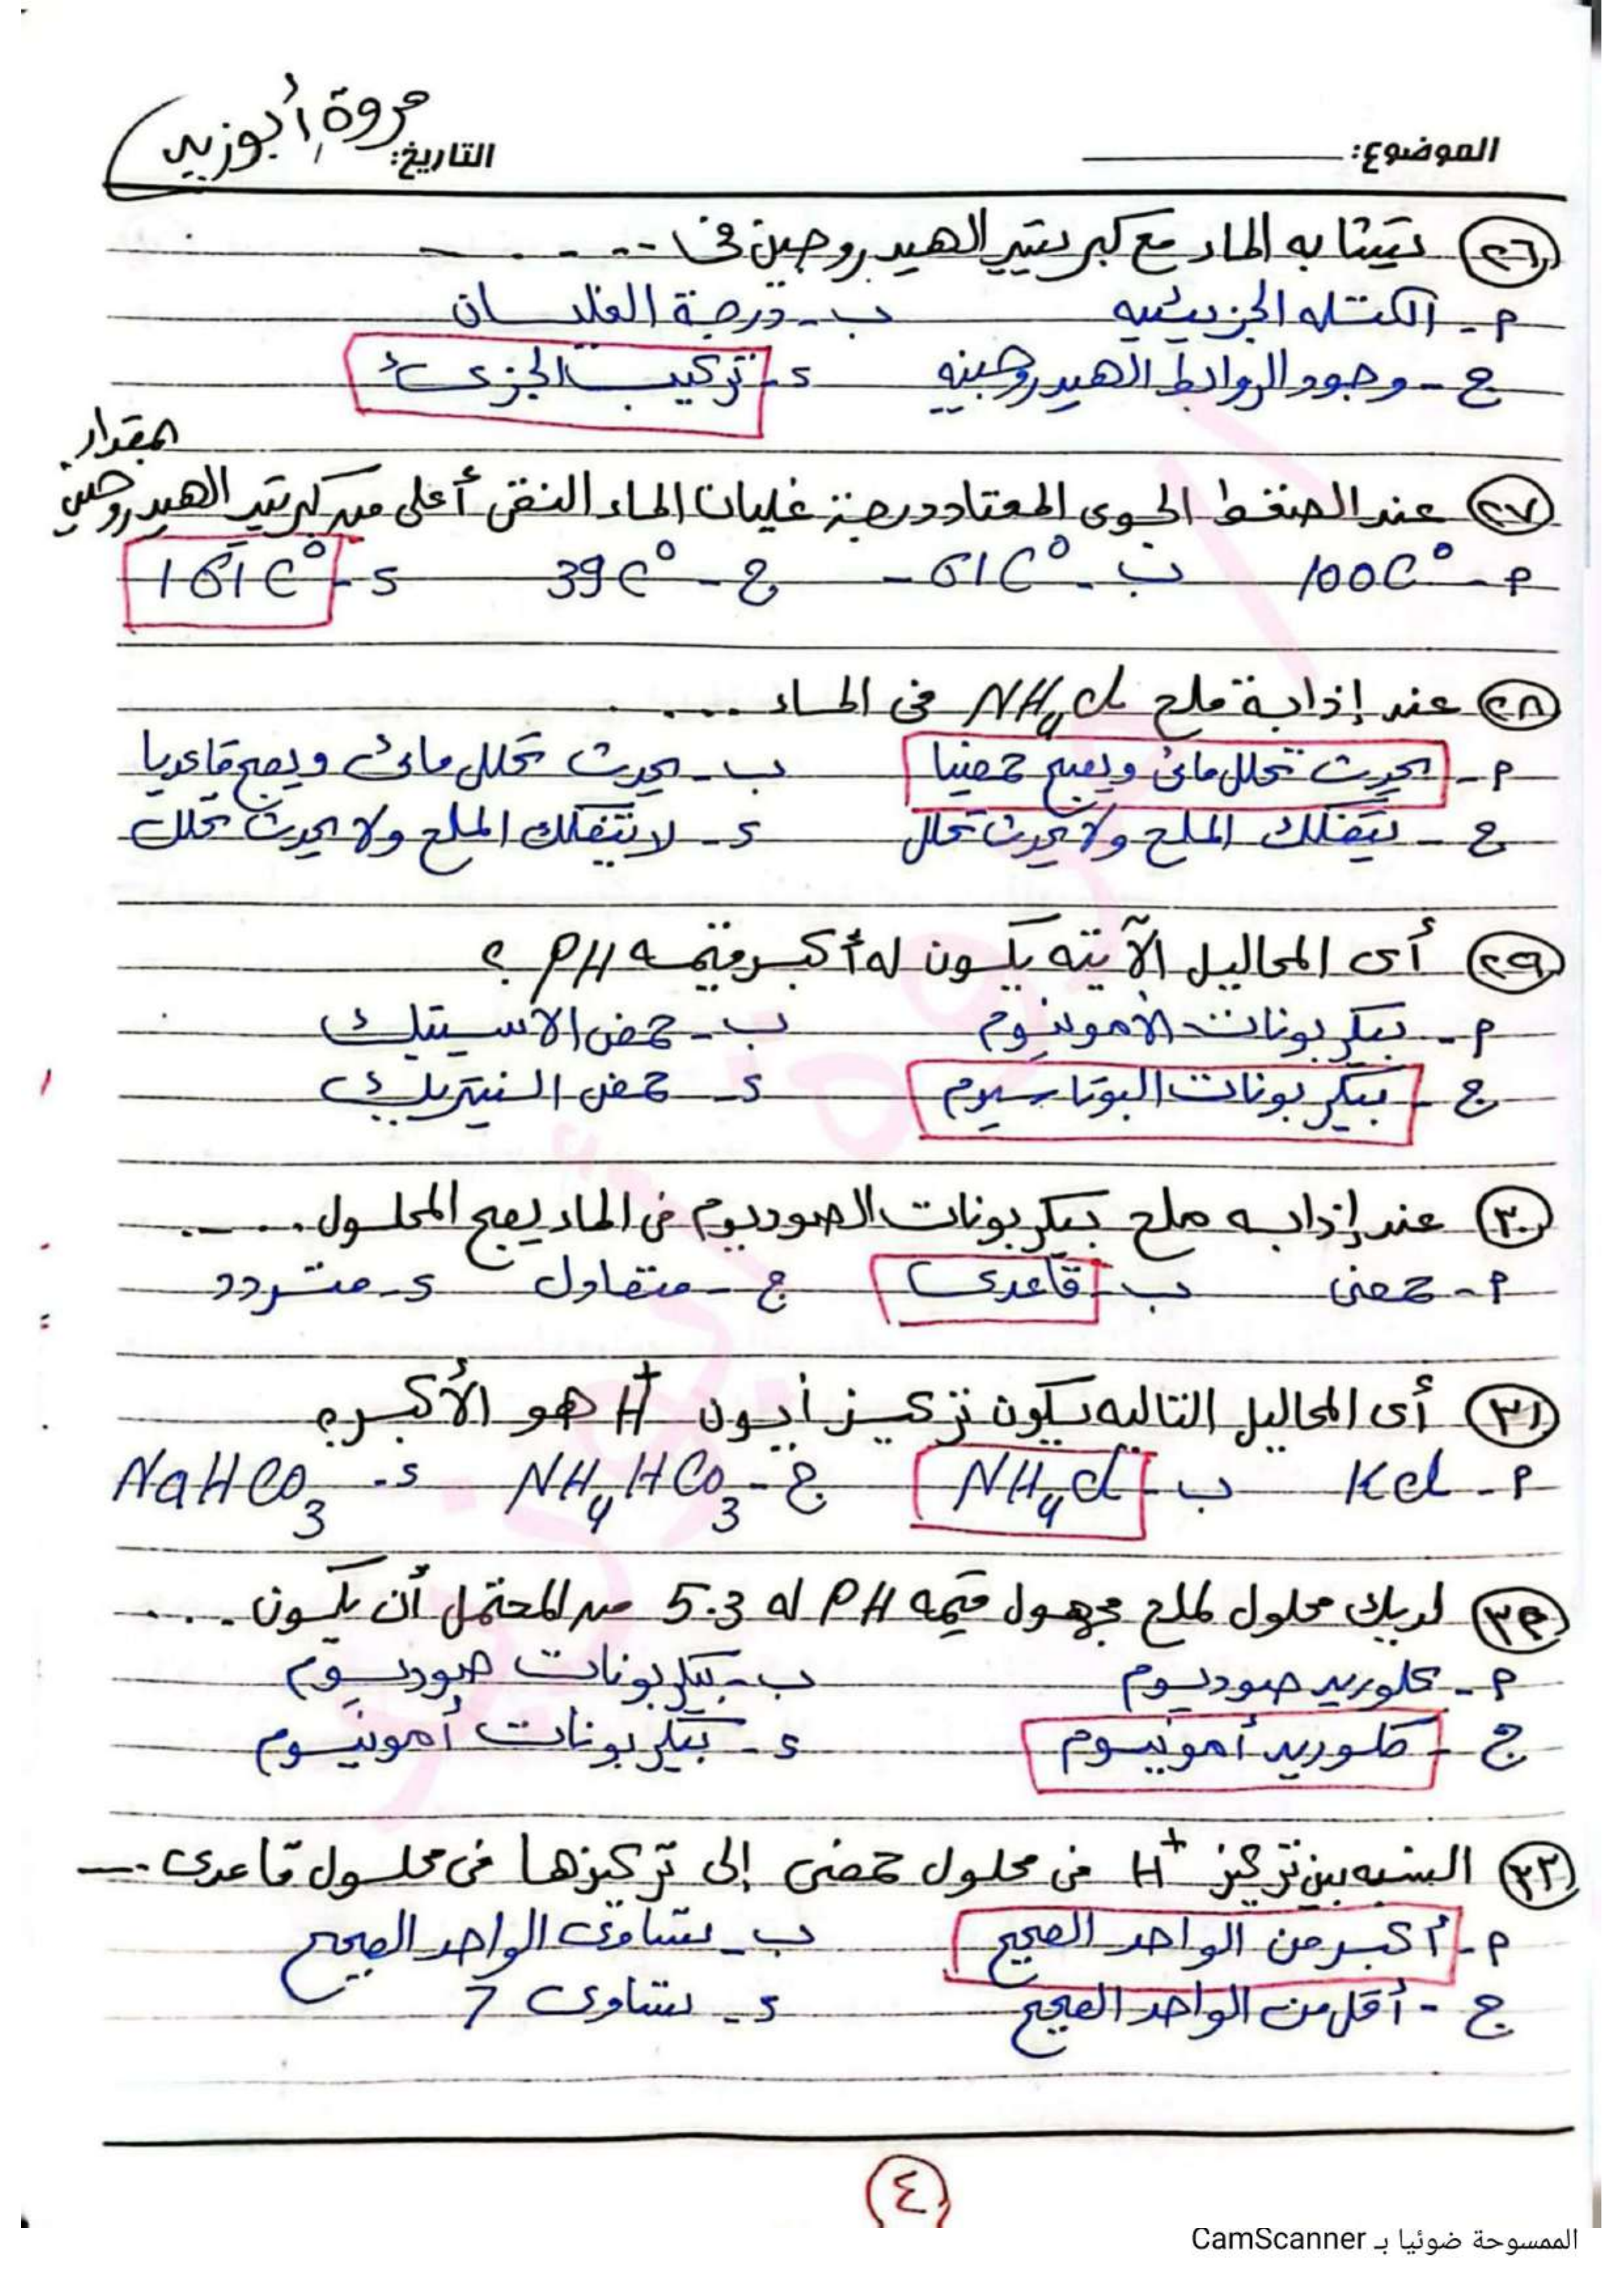 الموضوع:
التاريخ: مروة أبوزيد
٢٦ تتشابه الماء مع كبريتيد الهيدروجين فى .....
م- الكتله الجزيئيه ب- درجة الغليان
ج- وجود الروابط الهيدروجينيه د- تركيب الجزىء
٢٧ عند الضغط الجوى المعتاد درجة غليان الماء النقى أعلى من كبريتيد الهيدروجين بمقدار
م- 100C° ب- -61C° ج- 39C° د- 161C°
٢٨ عند إذابة ملح NH4Cl فى الماء .....
م- يحدث تحلل مائى ويصبح حمضيا ب- يحدث تحلل مائى ويصبح قاعديا
ج- يتفكك الملح ولا يحدث تحلل د- لا يتفكك الملح ولا يحدث تحلل
٢٩ أى المحاليل الآتيه يكون له أكبر قيمه PH ؟
م- بيكربونات الأمونيوم ب- حمض الاسيتيك
ج- بيكربونات البوتاسيوم د- حمض النيتريك
٣٠ عند إذابه ملح بيكربونات الصوديوم فى الماء يصبح المحلول .....
م- حمضى ب- قاعدى ج- متعادل د- متردد
٣١ أى المحاليل التاليه يكون تركيز أيون H+ هو الأكبر؟
م- KCl ب- NH4Cl ج- NH4HCO3 د- NaHCO3
٣٢ لديك محلول لملح مجهول قيمه PH له 5.3 من المحتمل أن يكون .....
م- كلوريد صوديوم ب- بيكربونات صوديوم
ج- كلوريد أمونيوم د- بيكربونات أمونيوم
٣٣ النسبه بين تركيز H+ فى محلول حمضى إلى تركيزها فى محلول قاعدى ...
م- أكبر من الواحد الصحيح ب- تساوى الواحد الصحيح
ج- أقل من الواحد الصحيح د- تساوى 7
٤
الممسوحة ضوئيا بـ CamScanner